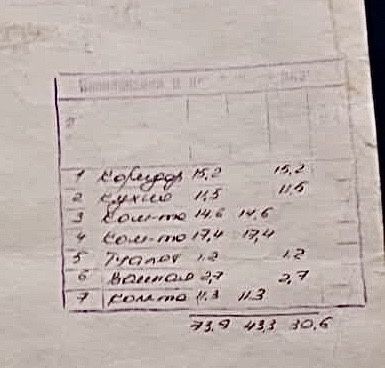 1 коридор 15,2 15,2
2 кухня 11,5 11,5
3 ком-та 14,6 14,6
4 ком-та 17,4 17,4
5 Туалет 1,2 1,2
6 Ванная 2,7 2,7
7 ком-та 11,3 11.3
73,9 43,3 30,6